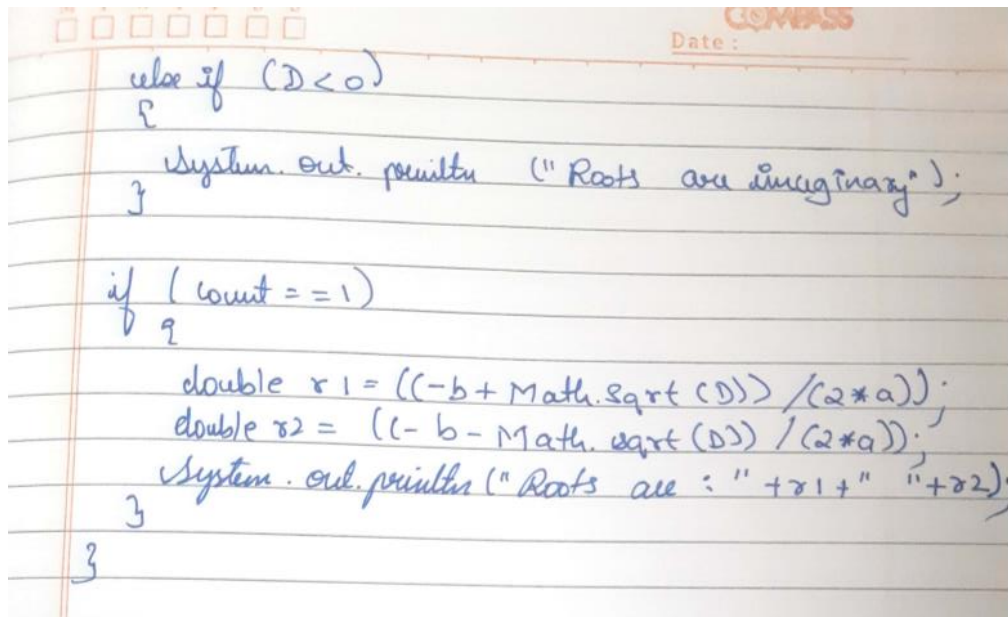 COMPASS
Date :
else if (D<0)
{
System. out. println (" Roots are imaginary" );
}
if ( count = = 1)
{
double r1 = ((-b + Math.sqrt (D)) /(2*a));
double r2 = ((- b - Math. sqrt (D)) / (2*a));
System . out. println (" Roots are : " +r1+" "+r2);
}
}